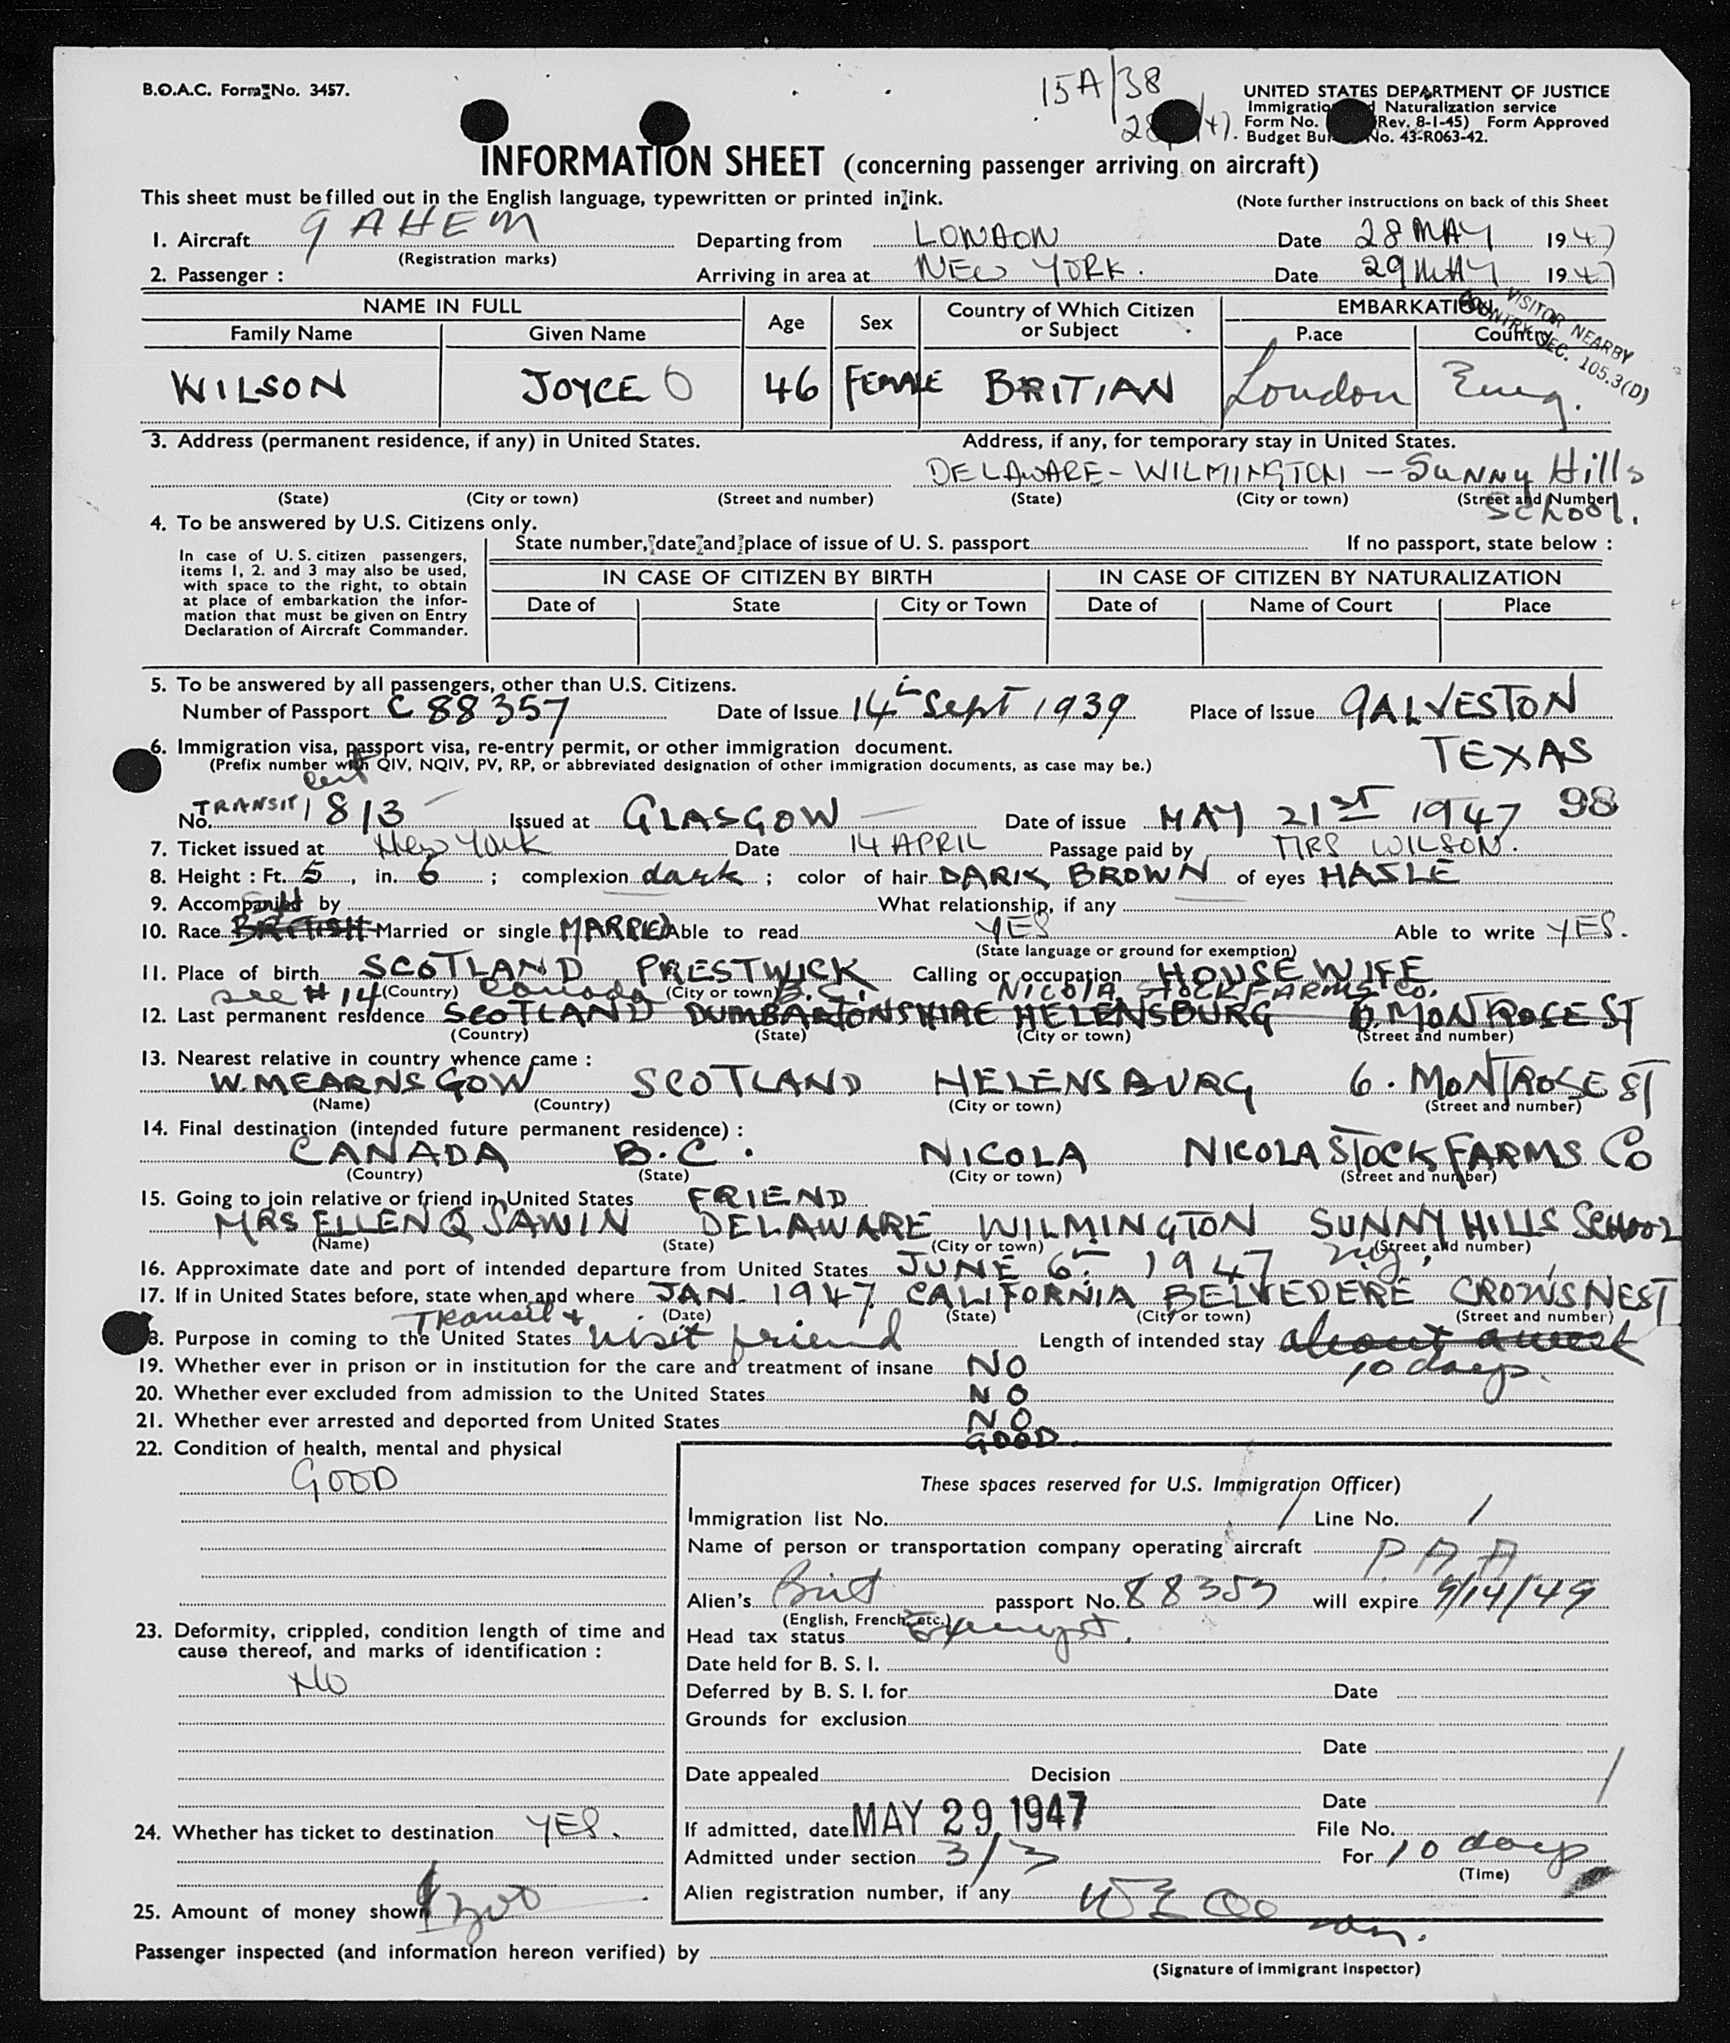 B.O.A.C. Form No. 3457.
15A/38
UNITED STATES DEPARTMENT OF JUSTICE
Immigration and Naturalization service
Form No. (Rev. 8-1-45) Form Approved
Budget Bureau No. 43-R063-42.
INFORMATION SHEET (concerning passenger arriving on aircraft)
This sheet must be filled out in the English language, typewritten or printed in ink.
(Note further instructions on back of this Sheet
1. Aircraft GAHEM Departing from LONDON Date 28 MAY 1947
(Registration marks)
2. Passenger : Arriving in area at NEW YORK. Date 29 MAY 1947
VISITOR NEARBY
COUNTRY SEC. 105.3(D)
NAME IN FULL Age Sex Country of Which Citizen or Subject EMBARKATION
Family Name Given Name Place Country
WILSON JOYCE O 46 FEMALE BRITIAN London Eng.
3. Address (permanent residence, if any) in United States. Address, if any, for temporary stay in United States.
DELAWARE - WILMINGTON - Sunny Hills
(State) (City or town) (Street and number) (State) (City or town) (Street and Number)
School.
4. To be answered by U.S. Citizens only.
In case of U.S. citizen passengers,
items 1, 2. and 3 may also be used,
with space to the right, to obtain
at place of embarkation the infor-
mation that must be given on Entry
Declaration of Aircraft Commander.
State number, date and place of issue of U. S. passport If no passport, state below :
IN CASE OF CITIZEN BY BIRTH IN CASE OF CITIZEN BY NATURALIZATION
Date of State City or Town Date of Name of Court Place
5. To be answered by all passengers, other than U.S. Citizens.
Number of Passport C 88357 Date of Issue 14th Sept 1939 Place of Issue GALVESTON
TEXAS
6. Immigration visa, passport visa, re-entry permit, or other immigration document.
(Prefix number with QIV, NQIV, PV, RP, or abbreviated designation of other immigration documents, as case may be.)
cert
No. TRANSIT 1813 Issued at GLASGOW Date of issue MAY 21st 1947 98
7. Ticket issued at New York Date 14 APRIL Passage paid by MRS WILSON.
8. Height : Ft. 5, in. 6 ; complexion dark ; color of hair DARK BROWN of eyes HASLE
9. Accompanied by What relationship, if any
10. Race BRITISH Married or single MARRIED Able to read YES Able to write YES.
(State language or ground for exemption)
11. Place of birth SCOTLAND PRESTWICK Calling or occupation HOUSEWIFE
(Country) (City or town)
see #14 Canada B.C. NICOLA STOCK FARMS Co.
12. Last permanent residence SCOTLAND DUMBARTONSHIRE HELENSBURG 6. MONTROSE ST
(Country) (State) (City or town) (Street and number)
13. Nearest relative in country whence came :
W. MEARNS GOW SCOTLAND HELENSBURG 6. MONTROSE ST
(Name) (Country) (City or town) (Street and number)
14. Final destination (intended future permanent residence) :
CANADA B.C. NICOLA NICOLA STOCK FARMS Co
(Country) (State) (City or town) (Street and number)
15. Going to join relative or friend in United States FRIEND
MRS ELLEN Q SAWIN DELAWARE WILMINGTON SUNNY HILLS SCHOOL
(Name) (State) (City or town) (Street and number)
16. Approximate date and port of intended departure from United States JUNE 6th 1947 ny.
17. If in United States before, state when and where JAN. 1947 CALIFORNIA BELVEDERE CROWSNEST
(Date) (State) (City or town) (Street and number)
Transit +
18. Purpose in coming to the United States visit friend Length of intended stay about a week
10 days.
19. Whether ever in prison or in institution for the care and treatment of insane NO
20. Whether ever excluded from admission to the United States NO
21. Whether ever arrested and deported from United States NO
GOOD.
22. Condition of health, mental and physical
GOOD
23. Deformity, crippled, condition length of time and
cause thereof, and marks of identification :
No
24. Whether has ticket to destination YES.
25. Amount of money shown $300
These spaces reserved for U.S. Immigration Officer)
Immigration list No. 1 Line No. 1
Name of person or transportation company operating aircraft P.A.A
Alien's Brit passport No. 88357 will expire 9/14/49
(English, French, etc.)
Head tax status Exempt.
Date held for B. S. I.
Deferred by B. S. I. for Date
Grounds for exclusion
Date
Date appealed Decision
Date
If admitted, date MAY 29 1947 File No.
Admitted under section 3/3 For 10 days
(Time)
Alien registration number, if any
Passenger inspected (and information hereon verified) by
(Signature of Immigrant Inspector)